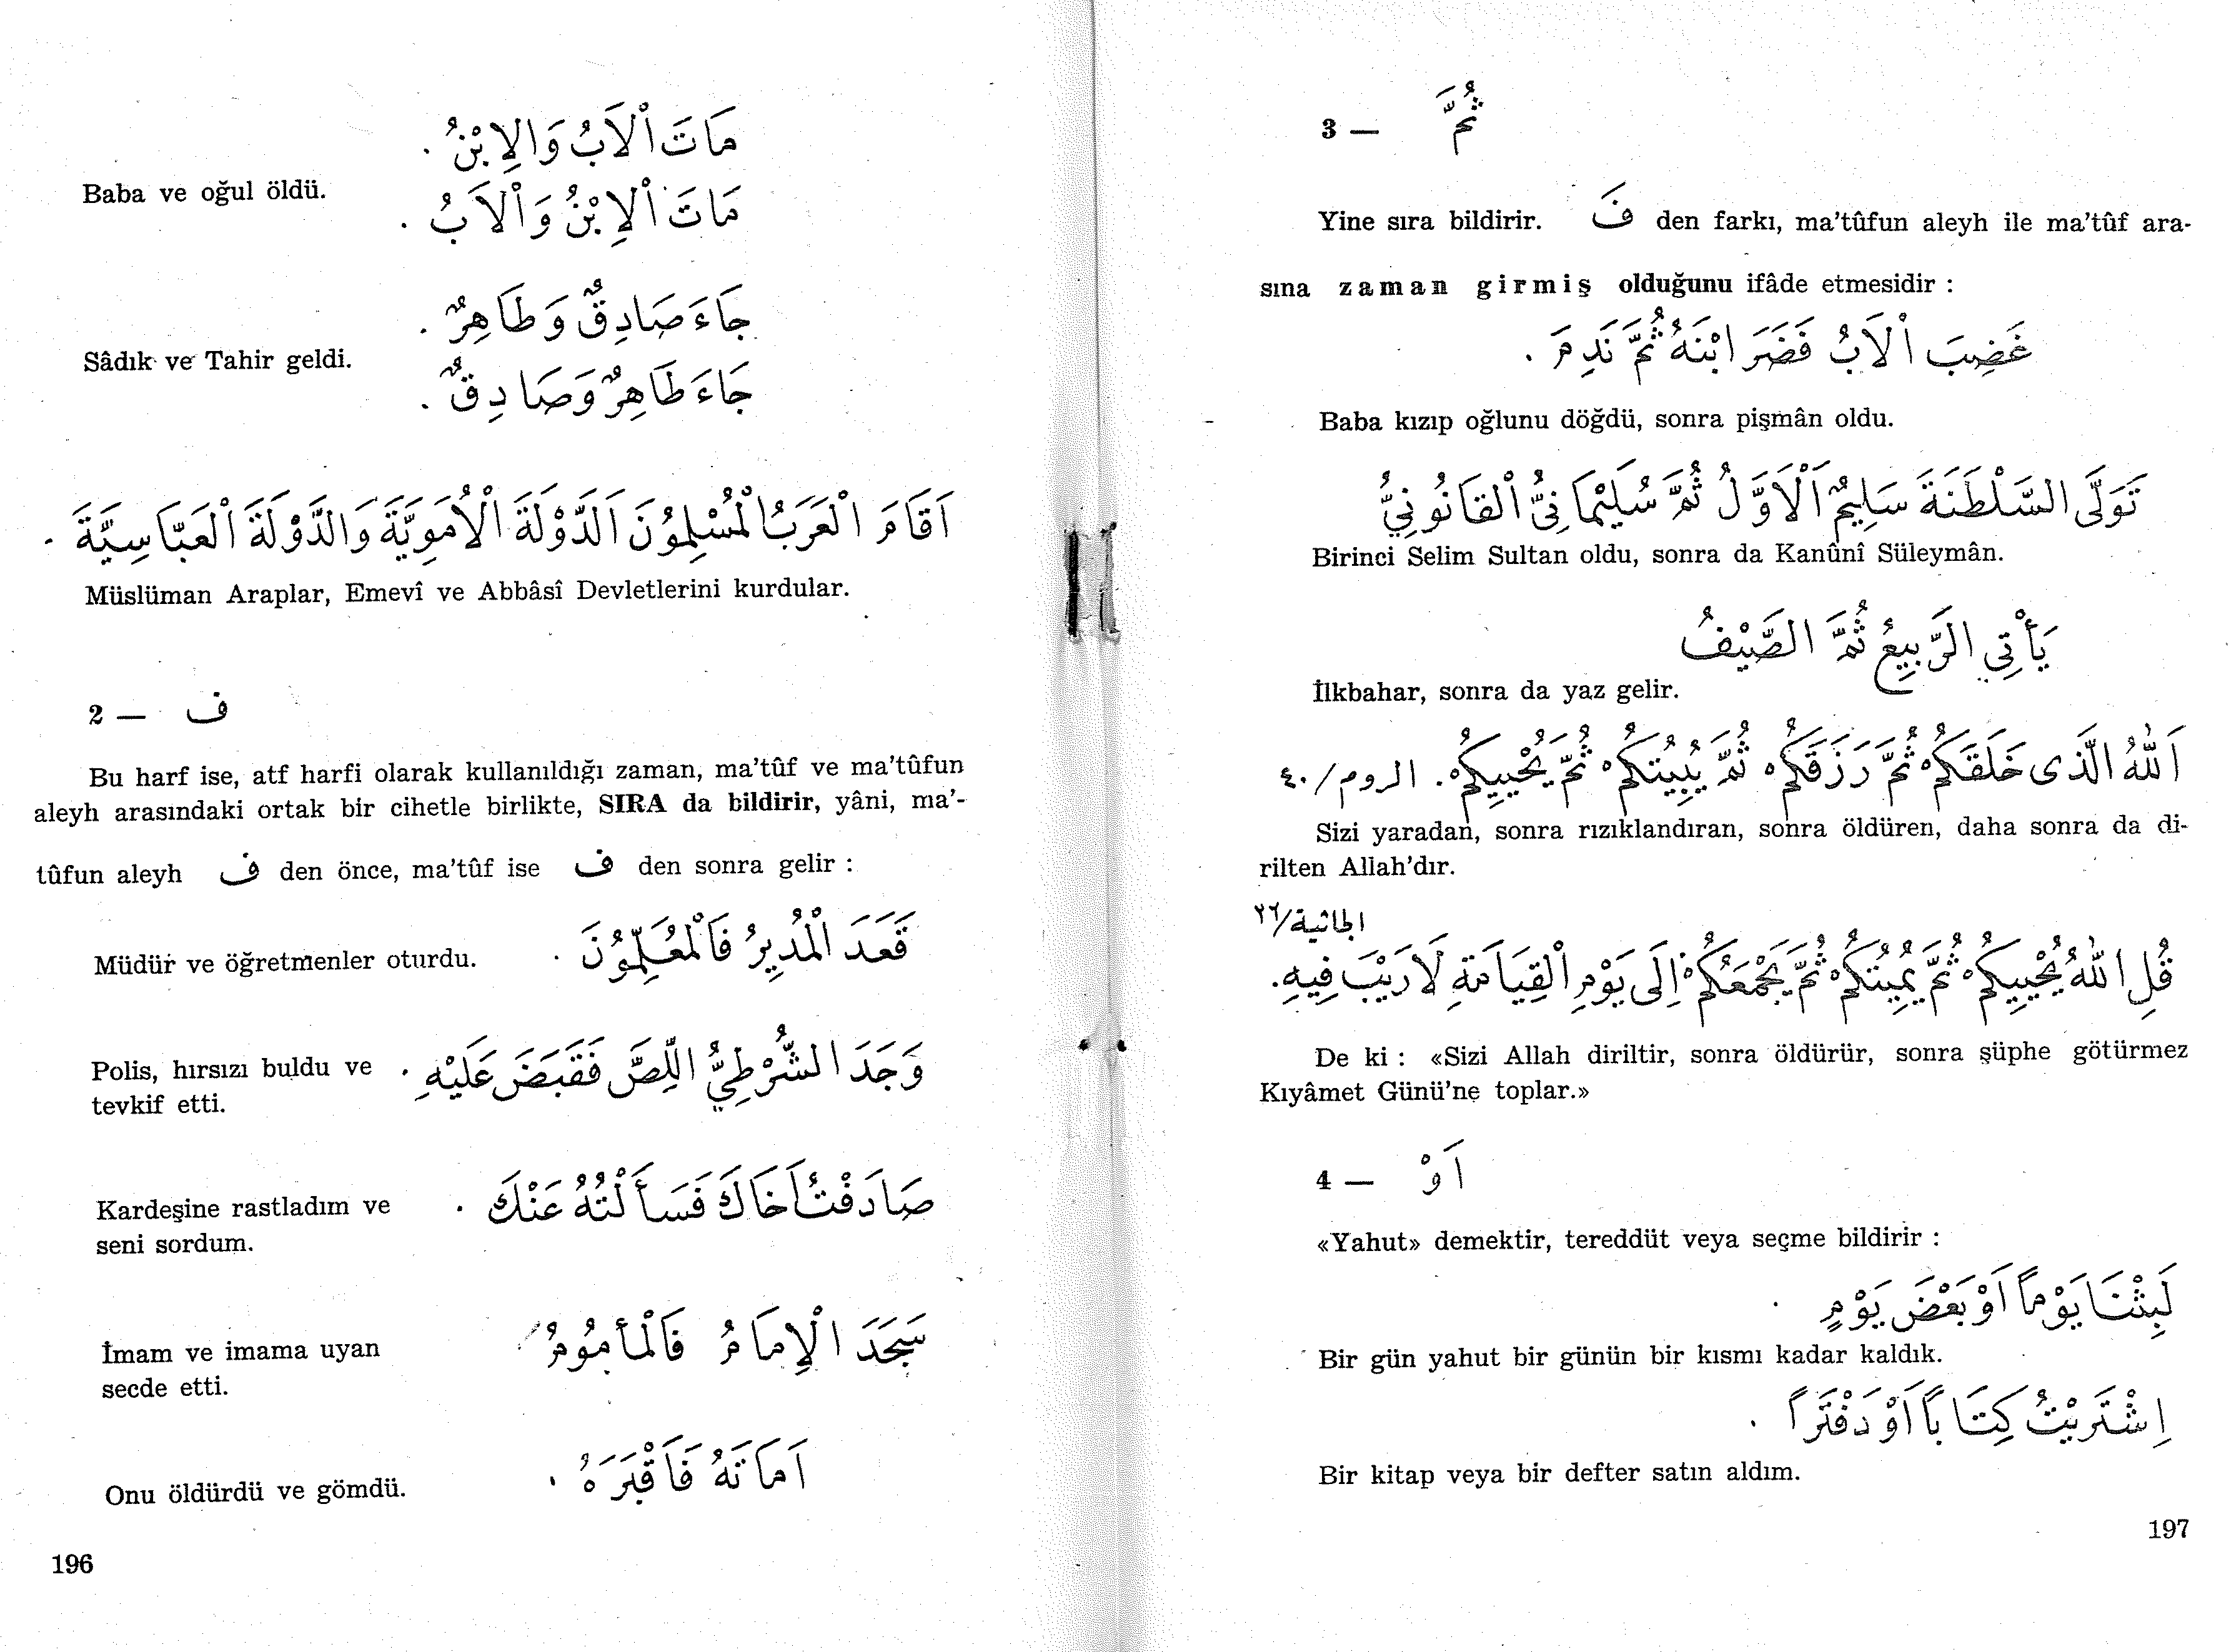 مَاتَ اْلاَبُ وَالِابْنُ .
Baba ve oğul öldü.
مَاتَ اْلاِبْنُ وَاْلاَبُ .
جَاءَ صَادِقٌ وَطَاهِرٌ .
Sâdık ve Tahir geldi.
جَاءَ طَاهِرٌ وَصَادِقٌ .
اَقَامَ الْعَرَبُ الْمُسْلِمُونَ اَلدَّوْلَةَ الْأُمَوِيَّةَ وَالدَّوْلَةَ الْعَبَّاسِيَّةَ .
Müslüman Araplar, Emevî ve Abbâsî Devletlerini kurdular.
2 — ف
Bu harf ise, atf harfi olarak kullanıldığı zaman, ma'tûf ve ma'tûfun
aleyh arasındaki ortak bir cihetle birlikte, SIRA da bildirir, yâni, ma'-
tûfun aleyh ف den önce, ma'tûf ise ف den sonra gelir :
قَعَدَ الْمُدِيرُ فَالْمُعَلِّمُونَ .
Müdür ve öğretmenler oturdu.
وَجَدَ الشُّرْطِيُّ اللِّصَّ فَقَبَضَ عَلَيْهِ .
Polis, hırsızı buldu ve
tevkif etti.
صَادَفْتُ اَخَاكَ فَسَأَلْتُهُ عَنْكَ .
Kardeşine rastladım ve
seni sordum.
سَجَدَ الْاِمَامُ فَالْمَأْمُومُ
İmam ve imama uyan
secde etti.
اَمَاتَهُ فَاَقْبَرَهُ .
Onu öldürdü ve gömdü.
196
3 — ثُمَّ
Yine sıra bildirir. فَ den farkı, ma'tûfun aleyh ile ma'tûf ara-
sına zaman girmiş olduğunu ifâde etmesidir :
غَضِبَ اْلاَبُ فَضَرَ ابْنَهُ ثُمَّ نَدِمَ .
Baba kızıp oğlunu döğdü, sonra pişmân oldu.
تَوَلَّى السَّلْطَنَةَ سَلِيمٌ اْلاَوَّلُ ثُمَّ سُلَيْمَانِيُّ الْقَانُونِيُّ
Birinci Selim Sultan oldu, sonra da Kanûnî Süleymân.
يَأْتِي الرَّبِيعُ ثُمَّ الصَّيْفُ
İlkbahar, sonra da yaz gelir.
اَللهُ الَّذى خَلَقَكُمْ ثُمَّ رَزَقَكُمْ ثُمَّ يُمِيتُكُمْ ثُمَّ يُحْيِيكُمْ . الروم/٤٠
Sizi yaradan, sonra rızıklandıran, sonra öldüren, daha sonra da di-
rilten Allah'dır.
الجاثية/٢٦
قُلِ اللهُ يُحْيِيكُمْ ثُمَّ يُمِيتُكُمْ ثُمَّ يَجْمَعُكُمْ اِلَى يَوْمِ الْقِيَامَةِ لَا رَيْبَ فِيهِ .
De ki : «Sizi Allah diriltir, sonra öldürür, sonra şüphe götürmez
Kıyâmet Günü'ne toplar.»
4 — اَوْ
«Yahut» demektir, tereddüt veya seçme bildirir :
لَبِثْنَا يَوْماً اَوْ بَعْضَ يَوْمٍ .
Bir gün yahut bir günün bir kısmı kadar kaldık.
اِشْتَرَيْتُ كِتَاباً اَوْ دَفْتَراً .
Bir kitap veya bir defter satın aldım.
197